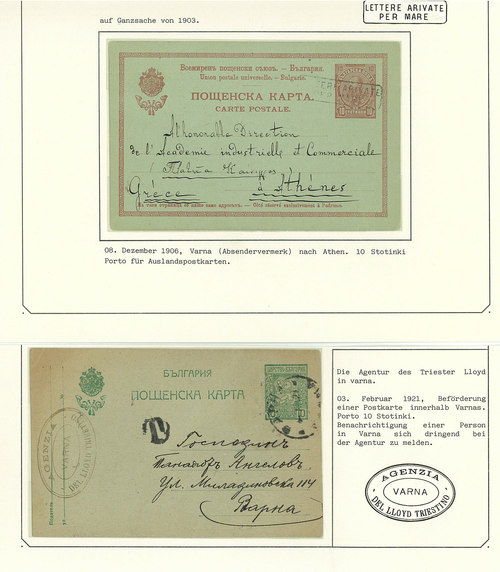 auf Ganzsache von 1903.
LETTERE ARIVATE
PER MARE
Всемиренъ пощенски съюзъ. — България.
Union postale universelle. — Bulgarie.
ПОЩЕНСКА КАРТА.
CARTE POSTALE.
10
10
Athonorable Direction
de l'Academie industrielle et Commerciale
Grèce à Athènes
На тази страница се пише само адресътъ. — Côté réservé exclusivement à l'adresse.
08. Dezember 1906, Varna (Absendervermerk) nach Athen. 10 Stotinki
Porto für Auslandspostkarten.
БЪЛГАРИЯ
ПОЩЕНСКА КАРТА
10
AGENZIA
VARNA
DEL LLOYD
Господинъ
Ангеловъ,
Ул. Миладиновска 114
Варна
Die Agentur des Triester Lloyd
in varna.
03. Februar 1921, Beförderung
einer Postkarte innerhalb Varnas.
Porto 10 Stotinki.
Benachrichtigung einer Person
in Varna sich dringend bei
der Agentur zu melden.
AGENZIA
VARNA
DEL LLOYD TRIESTINO